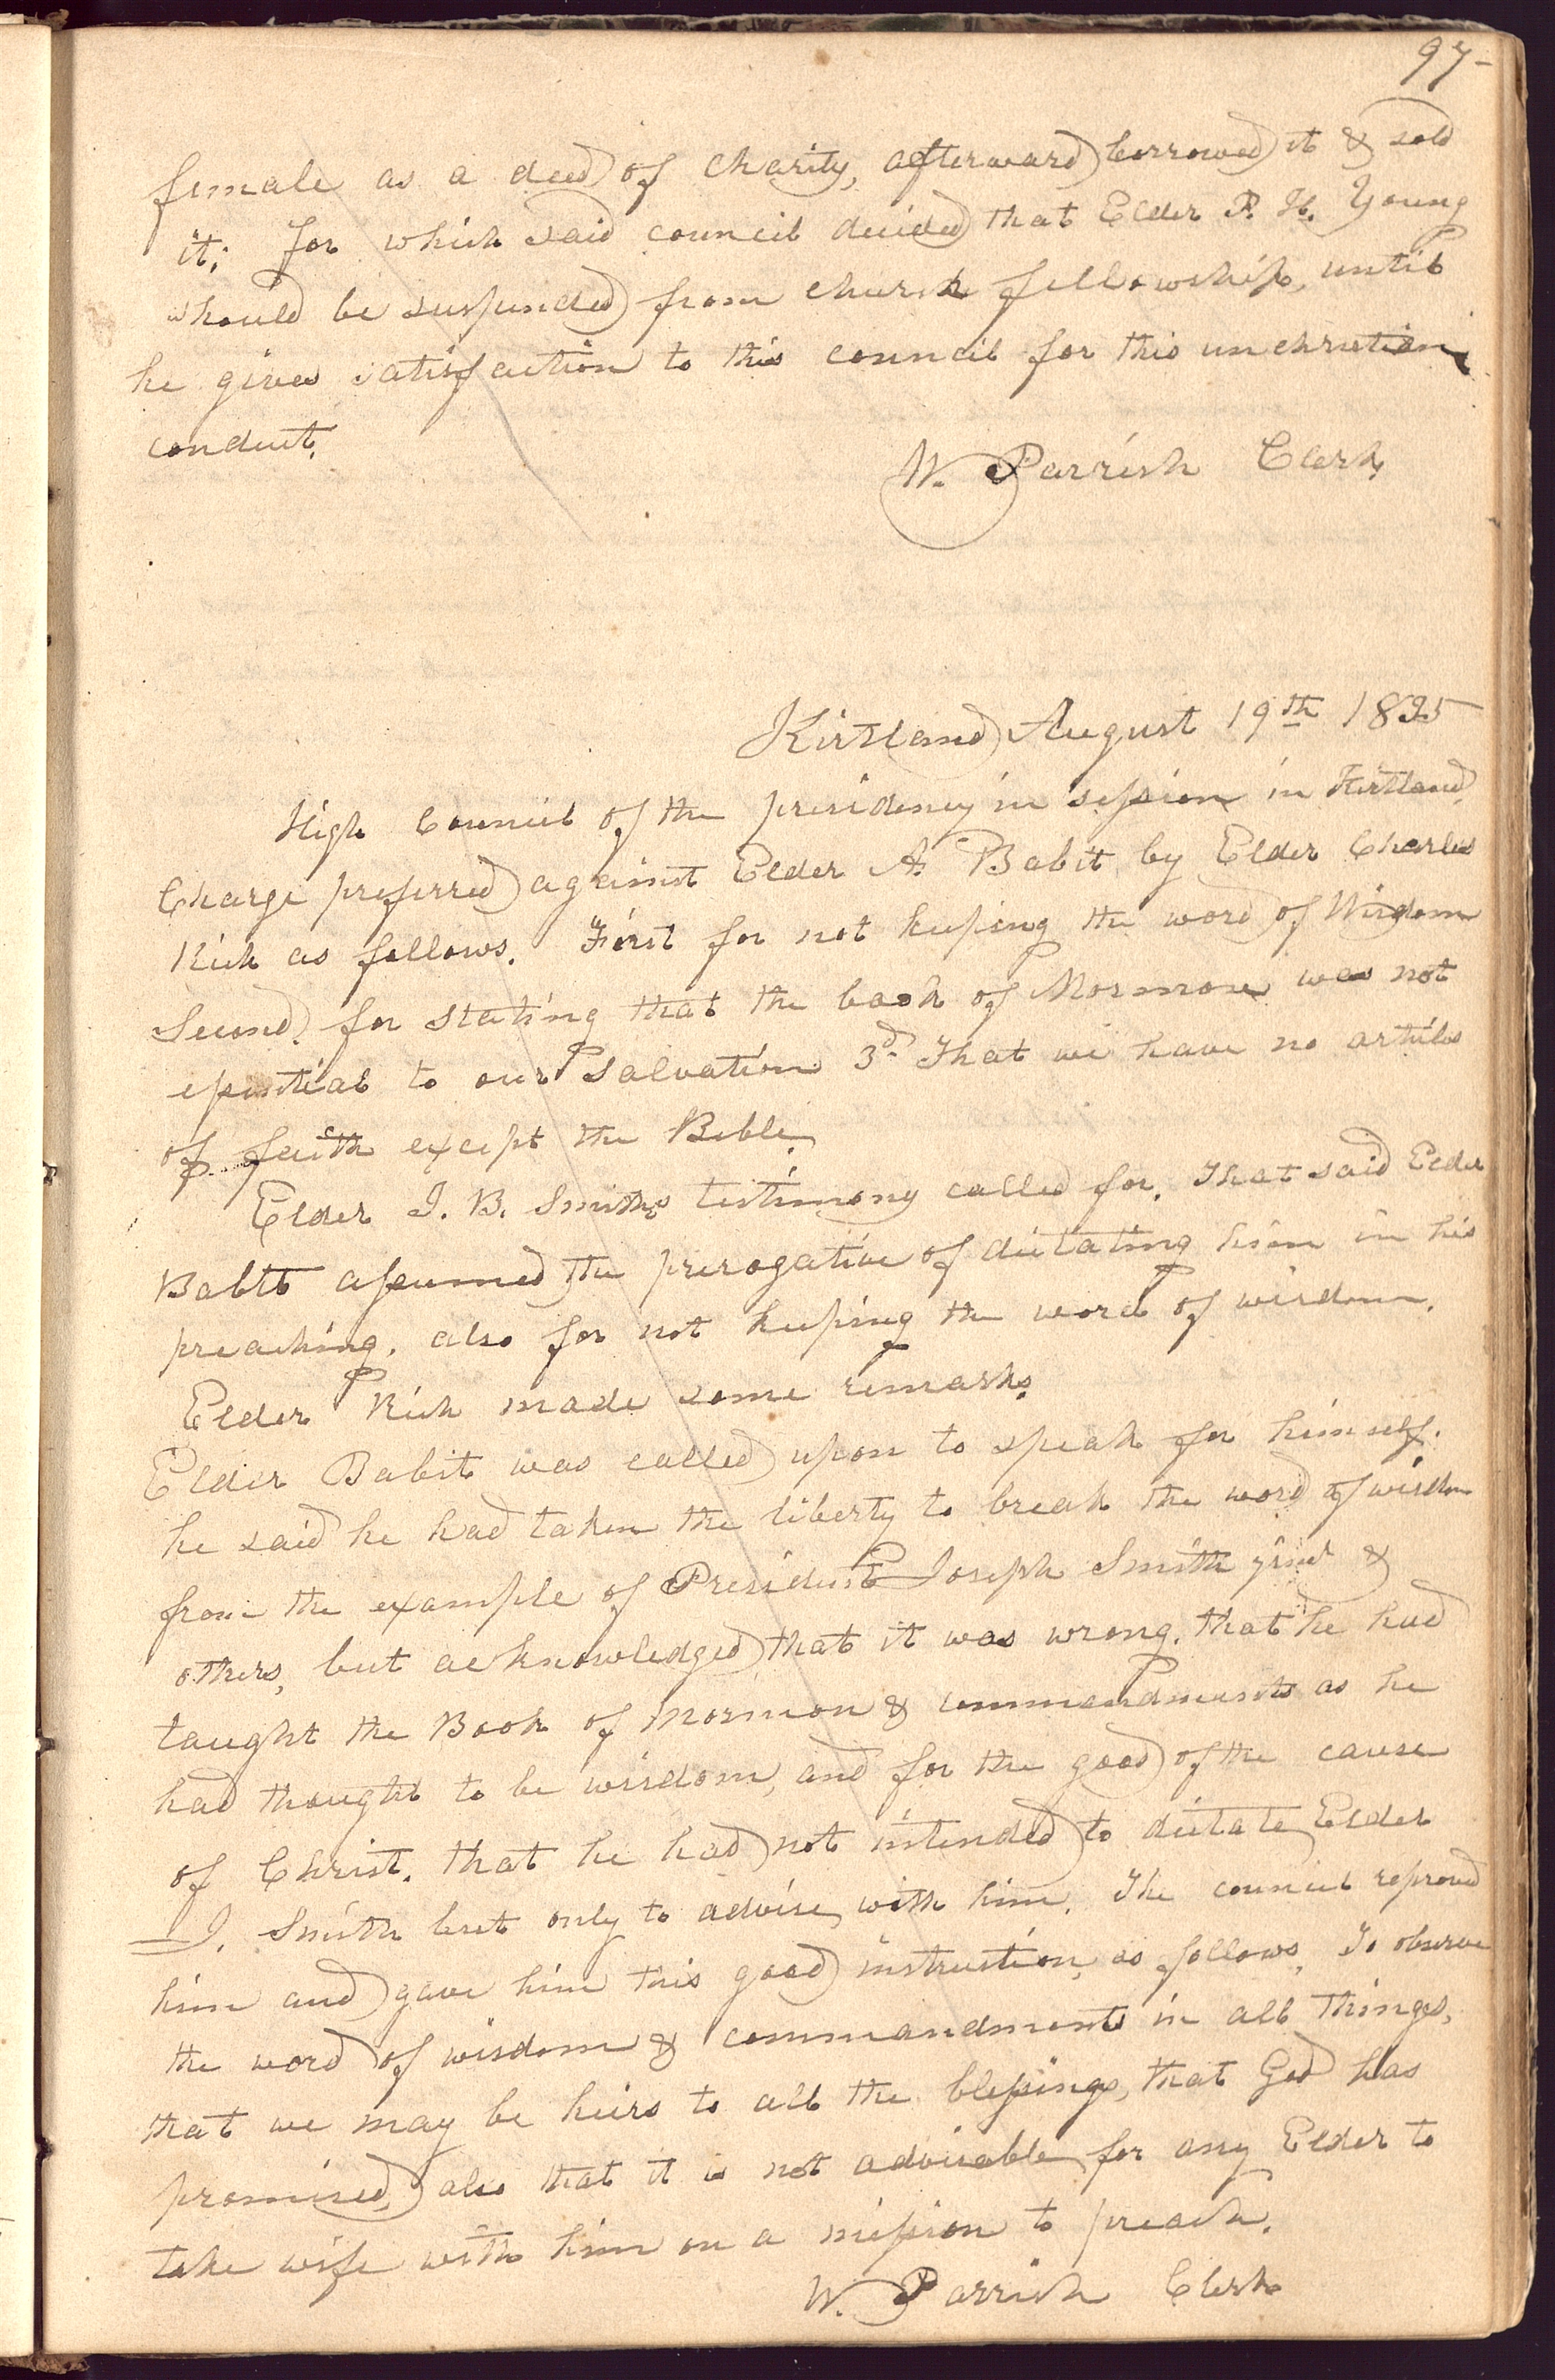 97-
female as a deed of charity, afterward borrowed it & sold
it; for which said council decided that Elder P. H. Young
should be suspended from church fellowship, until
he gives satisfaction to this council for this unchristian
conduct.
W. Parrish Clerk,
Kirtland August 19th 1835
High Council of the presidency in session in Kirtland.
Charge preferred against Elder A. Babit by Elder Charles
Rich as follows. First for not keeping the word of Wisdom
Second, for stating that the book of Mormon was not
essential to our salvation 3d. That we have no articles
of faith except the Bible.
Elder I. B. Smiths testimony called for. That said Elder
Babtt assumed the prerogative of dictating him in his
preaching, also for not keeping the word of wisdom.
Elder Rich made some remarks.
Elder Babit was called upon to speak for himself.
he said he had taken the liberty to break the word of wisdom
from the example of President Joseph Smith jnr &
others, but acknowledged that it was wrong. that he had
taught the Book of Mormon & commandments as he
had thought to be wisdom, and for the good of the cause
of Christ. that he had not intended to dictate Elder
I. Smith but only to advise with him. The council reproved
him and gave him this good instruction, as follows, To observe
the word of wisdom & commandments in all things,
that we may be heirs to all the blessings, that God has
promised, also that it is not advisable for any Elder to
take wife with him on a mission to preach.
W. Parrish Clerk